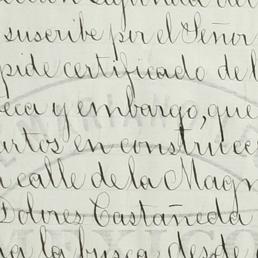 suscribe por el Señor
pide certificado de l
eca y embargo, que
artos en construcc
calle de la Magn
Dolores Castañeda
na la busca desde